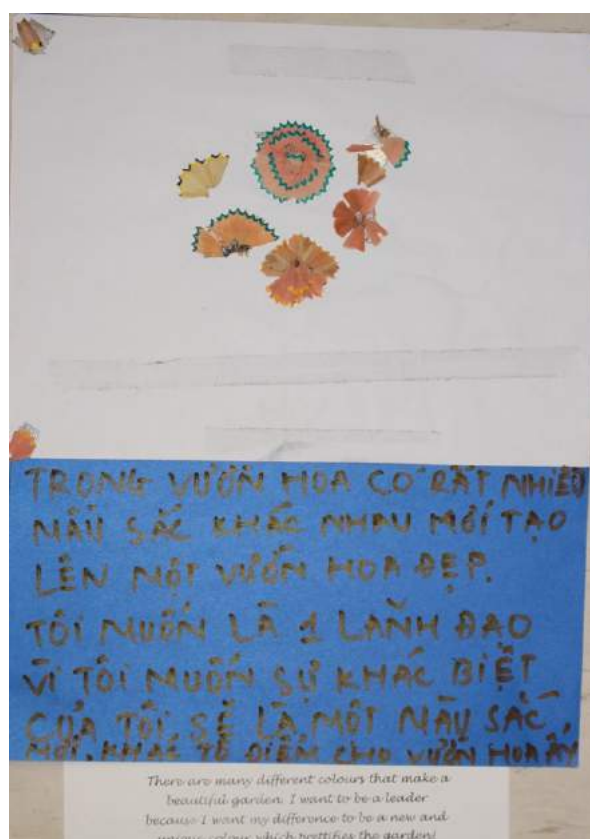 TRONG VƯỜN HOA CÓ RẤT NHIỀU
MÀU SẮC KHÁC NHAU MỚI TẠO
LÊN MỘT VƯỜN HOA ĐẸP.
TÔI MUỐN LÀ 1 LÃNH ĐẠO
VÌ TÔI MUỐN SỰ KHÁC BIỆT
CỦA TÔI SẼ LÀ MỘT MÀU SẮC
MỚI, KHÁC TÔ ĐIỂM CHO VƯỜN HOA ẤY
There are many different colours that make a
beautiful garden. I want to be a leader
because I want my difference to be a new and
unique colour which prettifies the garden!